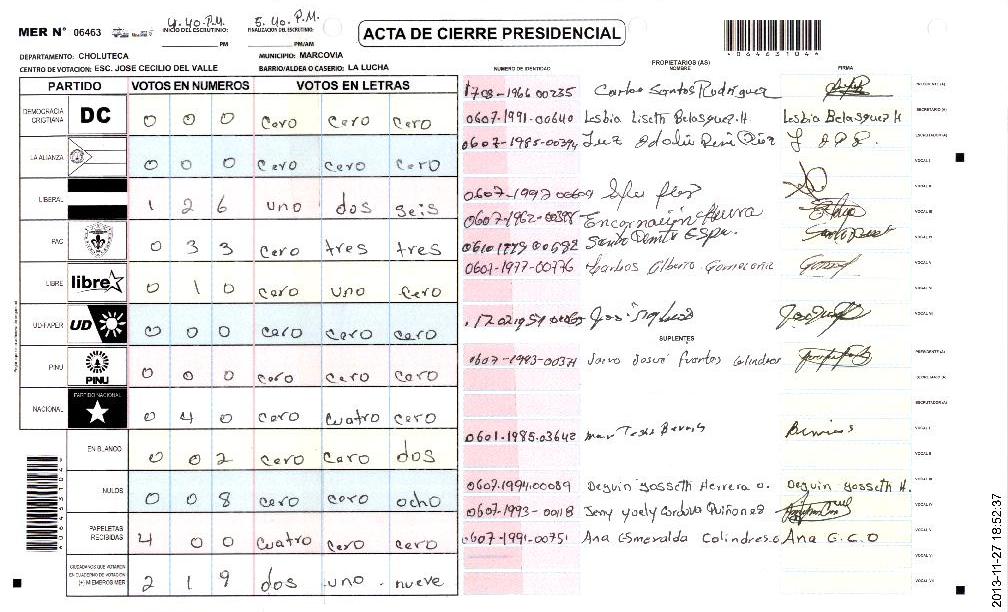 MER N° 06463
4.40 P.M.
INICIO DEL ESCRUTINIO: PM
5.40 P.M.
FINALIZACION DEL ESCRUTINIO: PM/AM
ACTA DE CIERRE PRESIDENCIAL
0646310 44
DEPARTAMENTO: CHOLUTECA
MUNICIPIO: MARCOVIA
CENTRO DE VOTACION: ESC. JOSE CECILIO DEL VALLE
BARRIO/ALDEA O CASERIO: LA LUCHA
PARTIDO VOTOS EN NUMEROS VOTOS EN LETRAS
NUMERO DE IDENTIDAD
PROPIETARIOS (AS)
NOMBRE
FIRMA
DEMOCRACIA CRISTIANA DC 0 0 0 cero cero cero
LA ALIANZA 0 0 0 cero cero cero
LIBERAL 1 2 6 uno dos seis
PAC 0 3 3 cero tres tres
LIBRE libre 0 1 0 cero uno cero
UD-FAPER UD 0 0 0 cero cero cero
PINU PINU 0 0 0 cero cero cero
NACIONAL PARTIDO NACIONAL 0 4 0 cero cuatro cero
EN BLANCO 0 0 2 cero cero dos
NULOS 0 0 8 cero cero ocho
PAPELETAS RECIBIDAS 4 0 0 cuatro cero cero
CIUDADANOS QUE VOTARON EN CUADERNO DE VOTACION (+) MIEMBROS MER 2 1 9 dos uno nueve
1708-1966 00235 Carlos Santos Rodriguez PRESIDENTE (A)
0607-1991-00640 Lesbia Liseth Belasquez.H Lesbia Belasquez H SECRETARIO (A)
0607-1985-00394 ESCRUTADOR (A)
VOCAL I
0607-1992 00609 VOCAL II
0607-1962-00398 Encarnación VOCAL III
VOCAL IV
0607-1977-00776 Alberto VOCAL V
VOCAL VI
VOCAL VII
SUPLENTES
0607-1983-00374 Josué Fuentes Colindres PRESIDENTE (A)
SECRETARIO (A)
ESCRUTADOR (A)
0601-1985-03642 VOCAL I
VOCAL II
0607.1991.00089 Deguin Yosseth Herrera O. Deguin Yosseth H. VOCAL III
0607-1993-0018 Jeny Yoely Cordova Quiñonez VOCAL IV
0607-1991-00751 Ana Esmeralda Colindres.O Ana E.C.O VOCAL V
VOCAL VI
VOCAL VII
2013-11-27 18:52:37